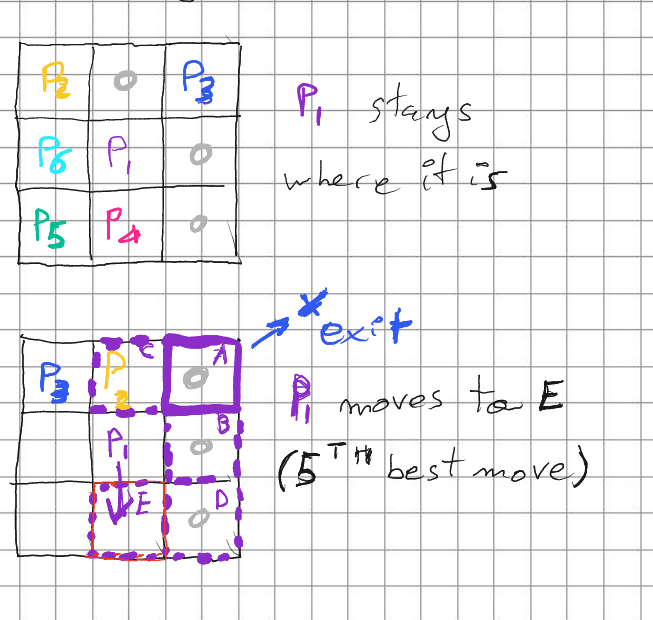 P2 O P3
P6 P1 O
P5 P4 O
P1 stays
where it is
* exit
P3 P2 C O A
P1 O B
E O D
P1 moves to E
(5TH best move)